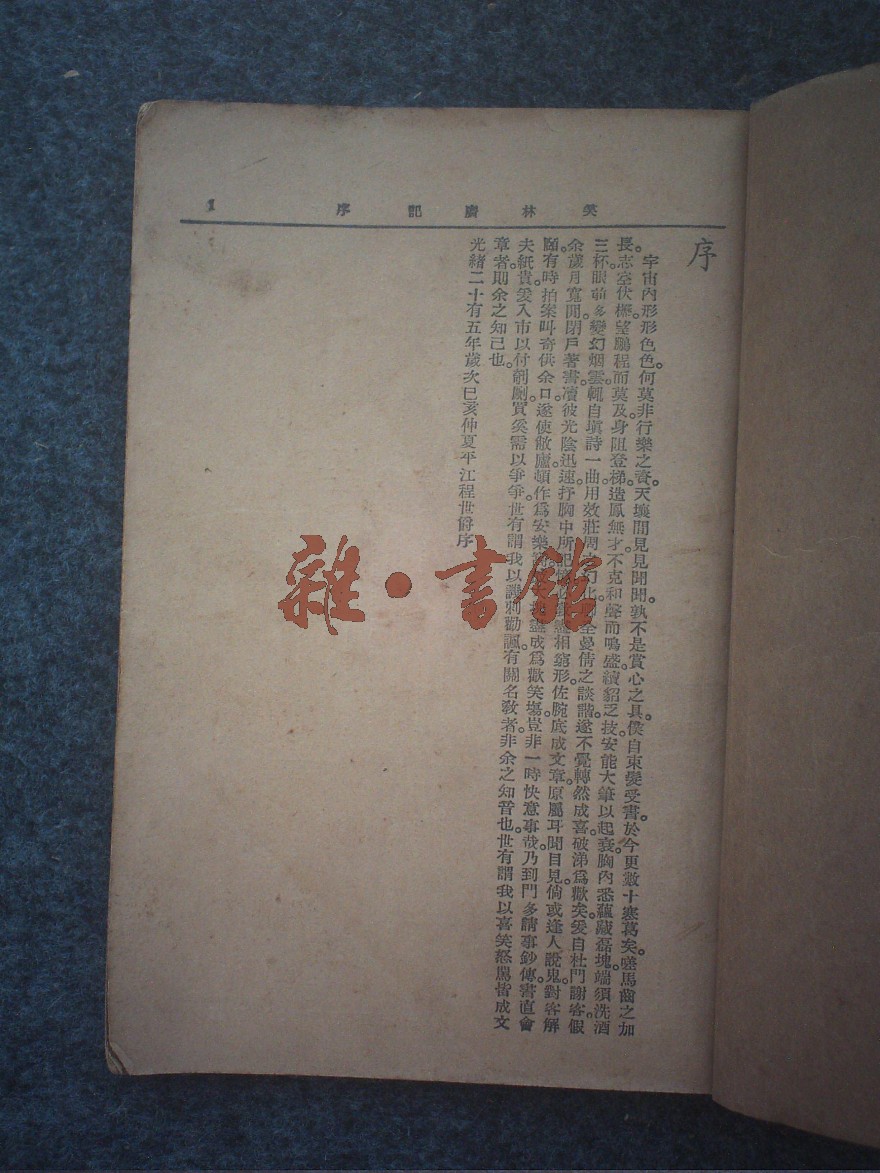 笑林廣記 序 1
序
宇宙內形形色色。何莫非行樂之資。天壤間見見聞聞。孰不是賞心之具。僕自束髮受書。於今更數十寒葛矣。嗟馬齒之加
長。志空伏櫪。望鵬程而莫及。身阻登梯。造鳳無才。不克和聲而鳴盛。續貂乏技。安能大筆以起衰。胸內悉蘊藏磊塊。端須洗酒
三杯。眼前多變幻烟雲。輒自填詩一曲。用效莊周 全曼倩之談諧。遂不覺轉然成喜。破涕爲歡矣。爰自杜門謝客。假
余歲月寬閒。閉戶著書。凟彼光陰迅速。抒胸中所記 相窮形。佐腕底成文章。原屬耳聞目見。倘或逢人說鬼。對客解
頤。有時拍案叫奇供余口。遂使敝廬頓作爲安樂 成爲歡笑塲。豈非一時快意事哉。乃到門多請事鈔傳。書直會
夫紙貴。爰入市以付剞劂。買奚需以爭爭。世有謂我以譏刺勸諷。有關名敎者。非余之知音也。世有謂我以喜笑怒罵皆成文
章者。則余之知已也。
光緖二十有五年歲次已亥仲夏平江程世爵序
雜·書館